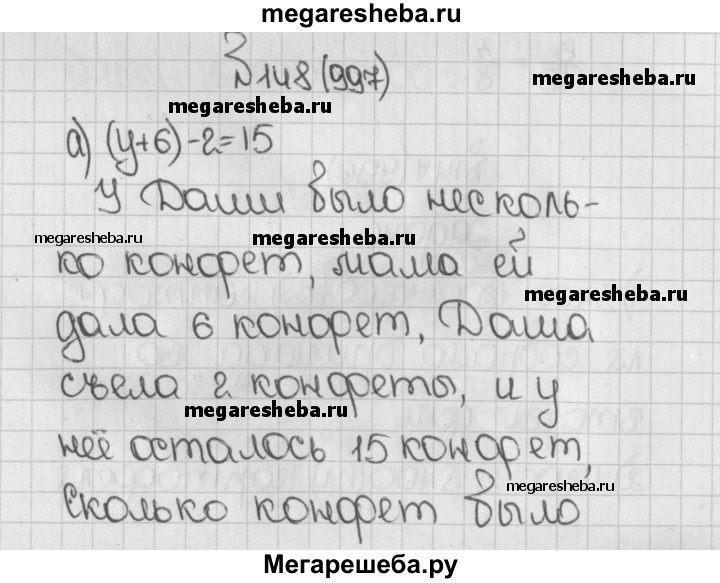 megaresheba.ru
№148(997)
megaresheba.ru megaresheba.ru
а) (у+6)-2=15
У Даши было несколь-
megaresheba.ru megaresheba.ru
ко конфет, мама ей
megaresheba.ru
дала 6 конфет, Даша
съела 2 конфеты, и у
megaresheba.ru
неё осталось 15 конфет,
megaresheba.ru
Сколько конфет было
Мегарешеба.ру